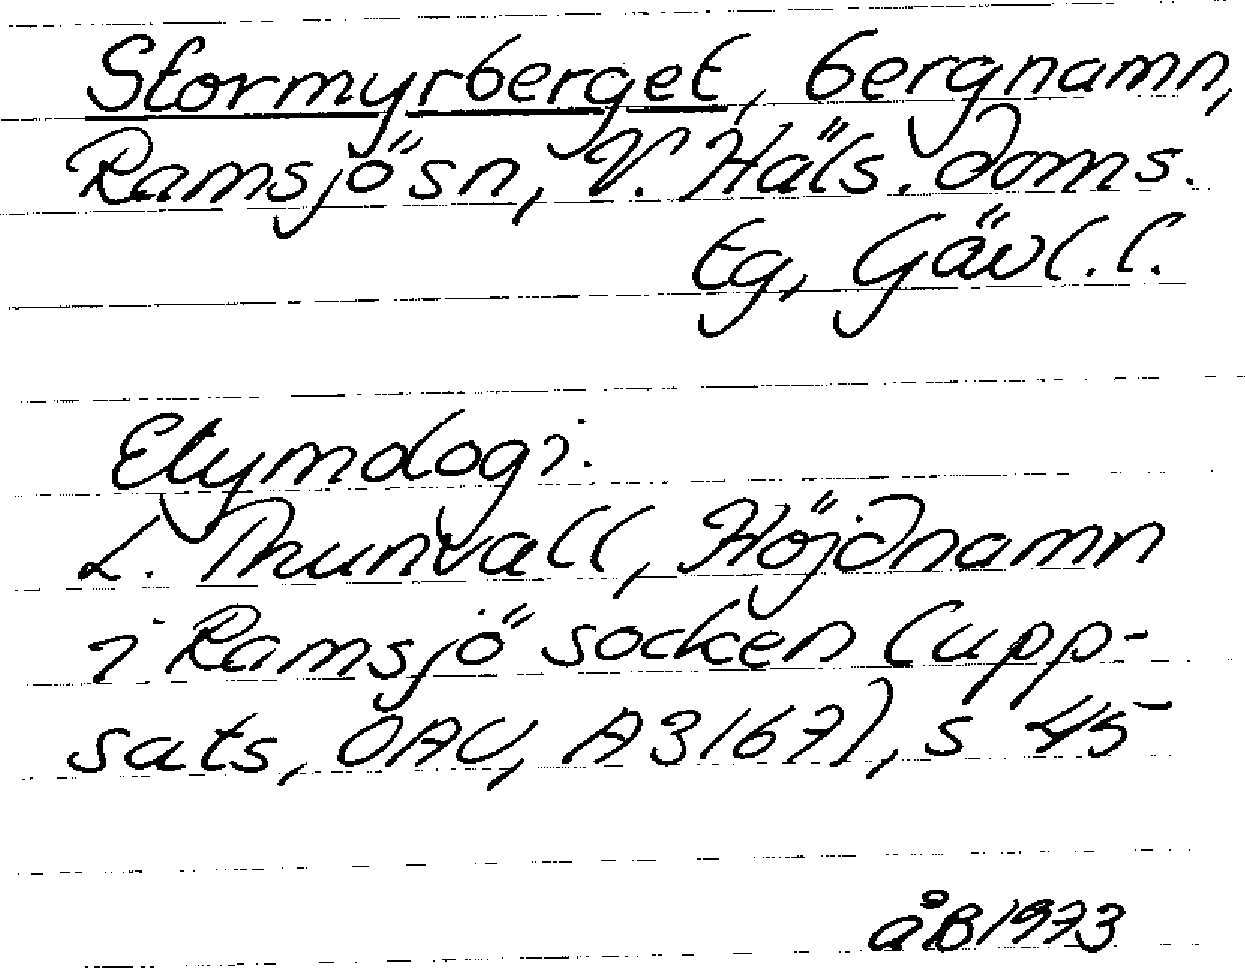 Stormyrberget, bergnamn,
Ramsjö sn, V. Häls. doms.
Eg, Gävl. l.
Etymologi.
L. Thunvall, Höjdnamn
i Ramsjö socken (upp-
sats, OAU, A3167), s 45
åB 1973